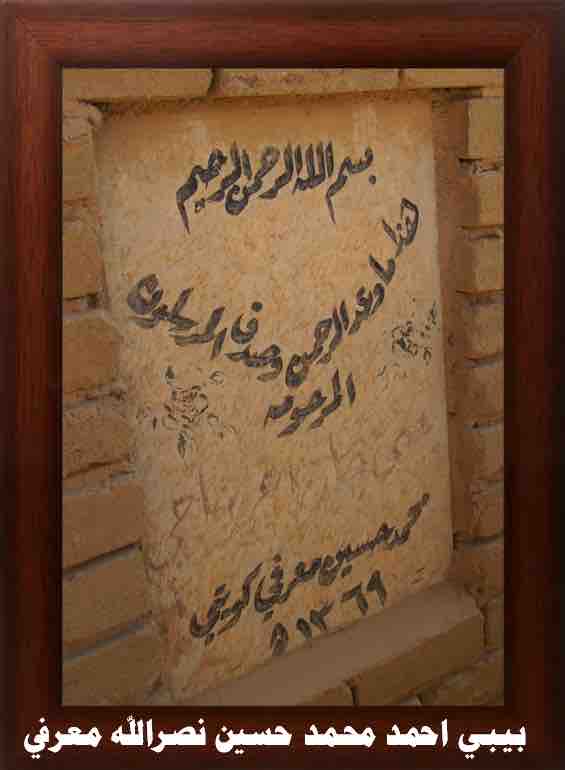 بسم الله الرحمن الرحيم
هذا ما وعد الرحمن وصدق المرسلون
المرحومه
محمد حسين معرفي كويتي
١٣٦٩ ه
بيبي احمد محمد حسين نصرالله معرفي